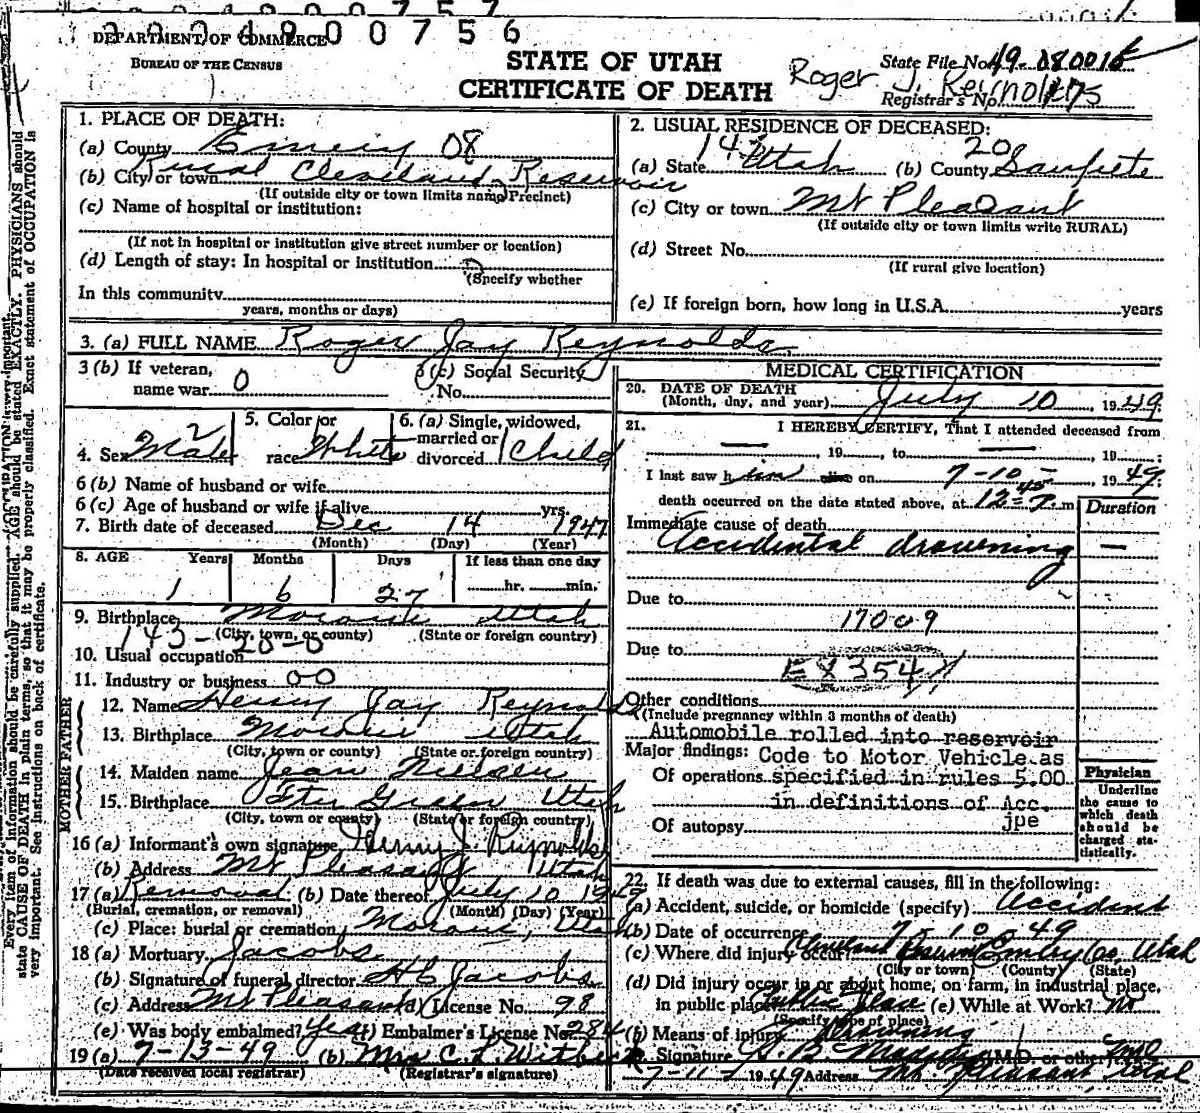 0 0 4 9 0 0 7 5 6
DEPARTMENT OF COMMERCE
BUREAU OF THE CENSUS
STATE OF UTAH
CERTIFICATE OF DEATH
Roger J. Reinolds
State File No. 49-080016
Registrar's No. 175
1. PLACE OF DEATH:
(a) County Emery 08
(b) City or town Rural Cleveland Reservoir
(If outside city or town limits name Precinct)
(c) Name of hospital or institution:
(If not in hospital or institution give street number or location)
(d) Length of stay: In hospital or institution
(Specify whether
In this community
years, months or days)
2. USUAL RESIDENCE OF DECEASED:
(a) State Utah (b) County 20 Sanpete
(c) City or town Mt Pleasant
(If outside city or town limits write RURAL)
(d) Street No.
(If rural give location)
(e) If foreign born, how long in U.S.A. years
3. (a) FULL NAME Roger Jay Reynolds
3 (b) If veteran, name war 0
3 (c) Social Security No.
4. Sex Male 2
5. Color or race White
6. (a) Single, widowed, married or divorced Child
6 (b) Name of husband or wife
6 (c) Age of husband or wife if alive yrs.
7. Birth date of deceased Dec 14 1947
(Month) (Day) (Year)
8. AGE Years Months Days If less than one day
1 6 27 hr. min.
9. Birthplace Moroni Utah
(City, town, or county) (State or foreign country)
143-20-0
10. Usual occupation
11. Industry or business 00
FATHER
12. Name Henry Jay Reynolds
13. Birthplace Moroni Utah
(City, town or county) (State or foreign country)
MOTHER
14. Maiden name Jean Nielsen
15. Birthplace Green Utah
(City, town or county) (State or foreign country)
16 (a) Informant's own signature Henry J. Reynolds
(b) Address Mt Pleasant Utah
17 (a) Removal (b) Date thereof July 10 1949
(Burial, cremation, or removal) (Month) (Day) (Year)
(c) Place: burial or cremation Moroni, Utah
18 (a) Mortuary Jacobs
(b) Signature of funeral director H C Jacobs
(c) Address Mt Pleasant License No. 98
(e) Was body embalmed? Yes (f) Embalmer's License No. 284
19 (a) 7-13-49 (b) Mrs C. L.
(Date received local registrar) (Registrar's signature)
MEDICAL CERTIFICATION
20. DATE OF DEATH
(Month, day, and year) July 10, 1949
21. I HEREBY CERTIFY, That I attended deceased from
, 19 , to , 19 ;
I last saw him alive on 7-10-, 1949;
death occurred on the date stated above, at 12 45 P. m
Duration
Immediate cause of death
Accidental drowning —
Due to
17009
Due to
EX354
Other conditions
(Include pregnancy within 3 months of death)
Automobile rolled into reservoir
Major findings: Code to Motor Vehicle as
Of operations specified in rules 5.00
in definitions of Acc.
Of autopsy jpe
Physician
Underline
the cause to
which death
should be
charged sta-
tistically.
22. If death was due to external causes, fill in the following:
(a) Accident, suicide, or homicide (specify) Accident
(b) Date of occurrence 7-10-49
(c) Where did injury occur? Cleveland Emery Co, Utah
(City or town) (County) (State)
(d) Did injury occur in or about home, on farm, in industrial place,
in public place? Public Place (e) While at Work? no
(Specify type of place)
Means of injury Drowning
Signature M.D. or other
7-11-1949 Address Mt Pleasant, Utah
Every item of information should be carefully supplied. AGE should be stated EXACTLY. PHYSICIANS should
state CAUSE OF DEATH in plain terms, so that it may be properly classified. Exact statement of OCCUPATION is
very important. See instructions on back of certificate.